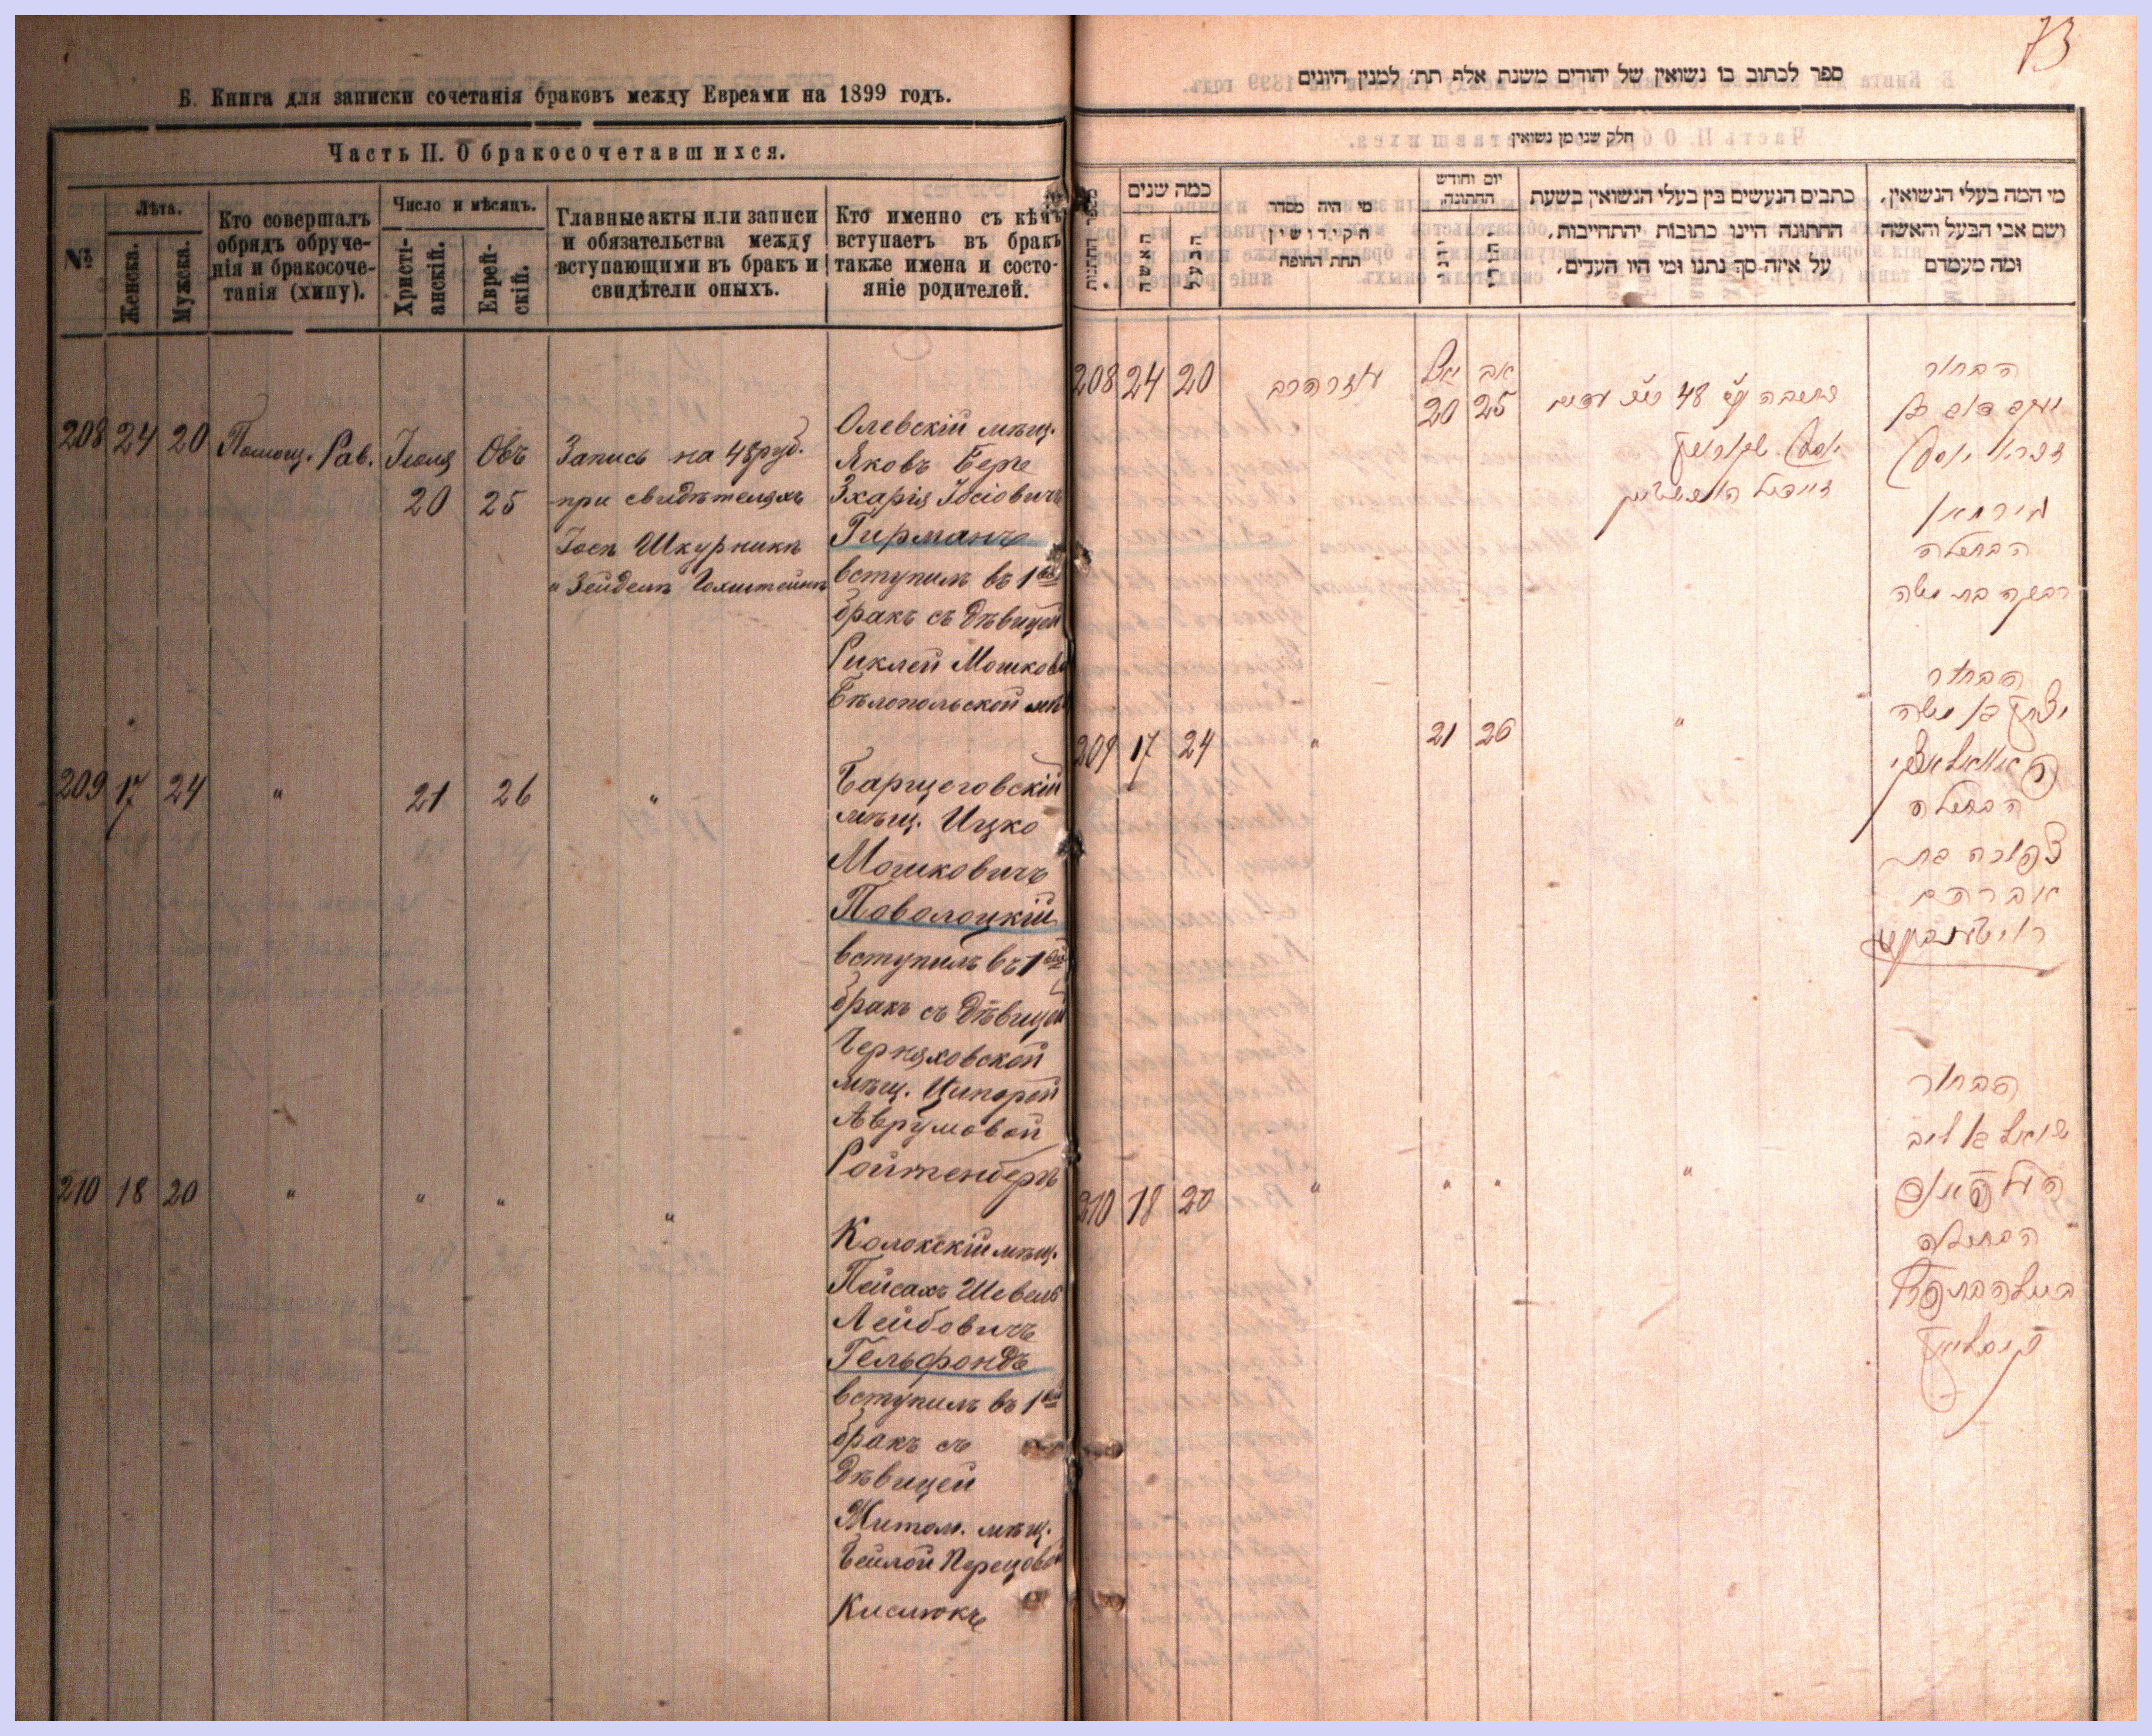 73
Б. Книга для записки сочетанія браковъ между Евреами на 1899 годъ.
Часть II. О бракосочетавшихся.
№
Лѣта.
Женска.
Мужска.
Кто совершалъ
обрядъ обруче-
нія и бракосоче-
танія (хипу).
Число и мѣсяцъ.
Христі-
анскій.
Еврей-
скій.
Главные акты или записи
и обязательства между
вступающими въ бракъ и
свидѣтели оныхъ.
Кто именно съ кѣмъ
вступаетъ въ бракъ
также имена и состо-
яніе родителей.
208 24 20 Помощ. Рав. Іюля Овъ
20 25
Запись на 48 руб.
при свидѣтеляхъ
Іосъ Шкурникъ
и Зейдель
Олевскій мѣщ.
Яковъ Берге
Зхарія Іосіовичъ
Гирманъ
вступилъ въ 1ый
бракъ съ дѣвицей
Риклей Мошков
Бѣлопольской мѣ
209 17 24 " 21 26 "
Барщеговскій
мѣщ. Ицко
Мошковичъ
Поволоцкій
вступилъ въ 1ый
бракъ съ дѣвицей
Черняховской
мѣщ. Ципорой
Аврумовой
Ройтенберъ
210 18 20 " " " "
мѣщ.
Пейсахъ Шевель
Лейбовичъ
Гельфондъ
вступилъ въ 1ый
бракъ съ
дѣвицей
Житом. мѣщ.
Бейлой Перецовой
Кислюкъ
ספר לכתוב בו נשואין של יהודים משנת אלף תת׳ למנין היונים
חלק שני מן נשואין
מספר החתונות
כמה שנים
האשה
הבעל
מי היה מסדר
הקידושין
תחת החופה
יום וחודש
החתונה.
יוני
יהודי
כתבים הנעשים בין בעלי הנשואין בשעת
החתונה היינו כתובות יהתחייבות,
על איזה סך נתנו ומי היו העדים.
מי המה בעלי הנשואין,
ושם אבי הבעל והאשה
ומה מעמדם
208 24 20 עוזר הרב
יולי אב
20 25
כתובה 48
יוסף
זיידיל
הבחור
יעקב
יוסף
גירמאן
הבתולה
רבקה בת משה
209 17 24 " 21 26 "
הבחור
יצחק בן משה
הבתולה
צפורה בת
אברהם
רויטענבערג
210 18 20 " " " "
הבחור
בן ליב
העלפאנד
הבתולה
ביילא בת פרץ
קיסליוק